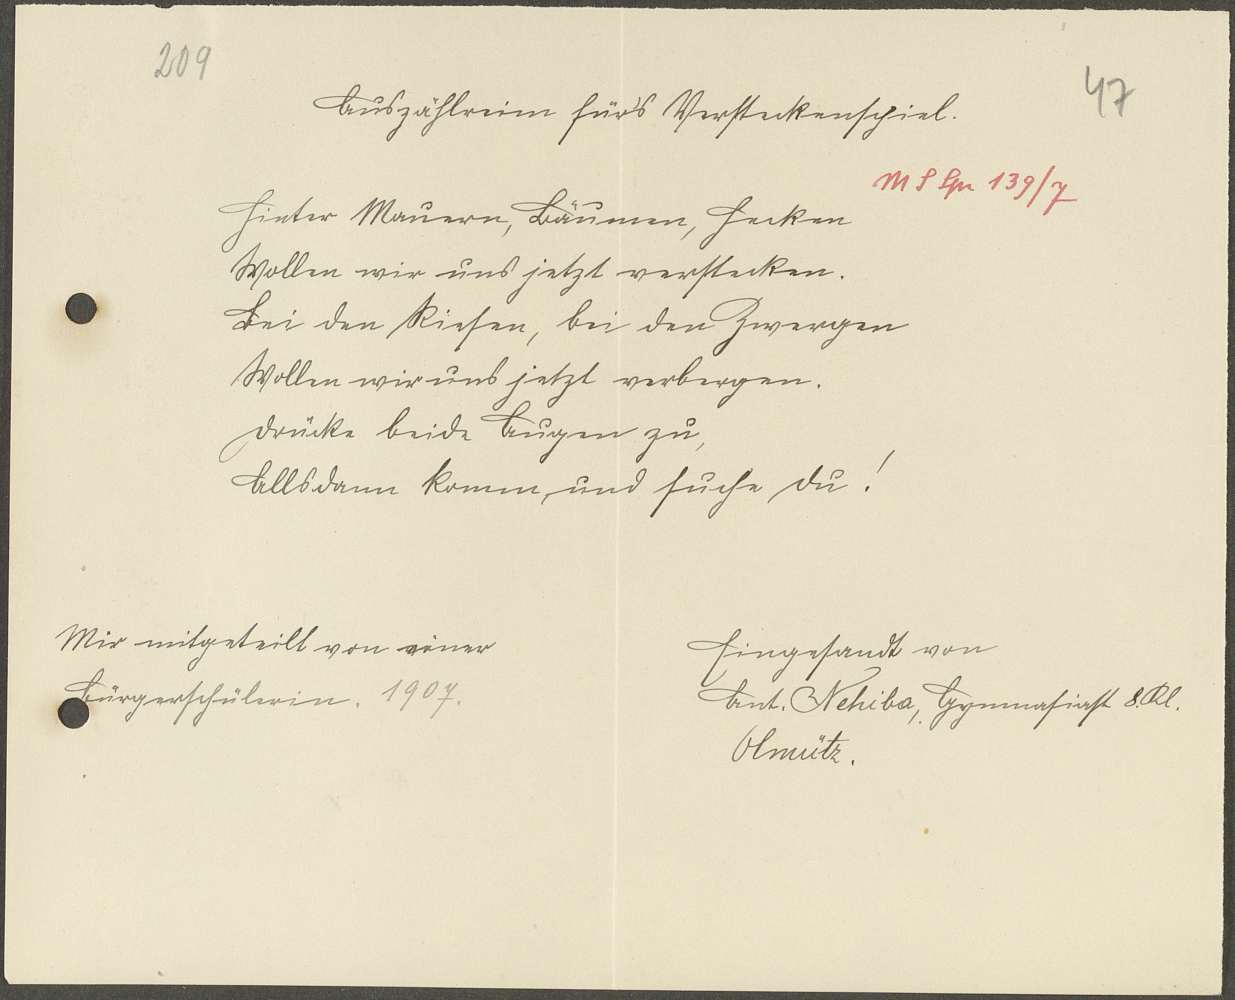 209
47
Auszählreim für's Versteckenspiel.
M S Spr 139/7
Hinter Mauern, Bäumen, Hecken
Wollen wir uns jetzt verstecken.
Bei den Riesen, bei den Zwergen
Wollen wir uns jetzt verbergen.
Drücke beide Augen zu,
Allsdann komm, und suche du!
Mir mitgeteilt von einer
Bürgerschülerin. 1907.
Eingesandt von
Ant. Nehiba, Gymnasiast 8. Kl.
Olmütz.